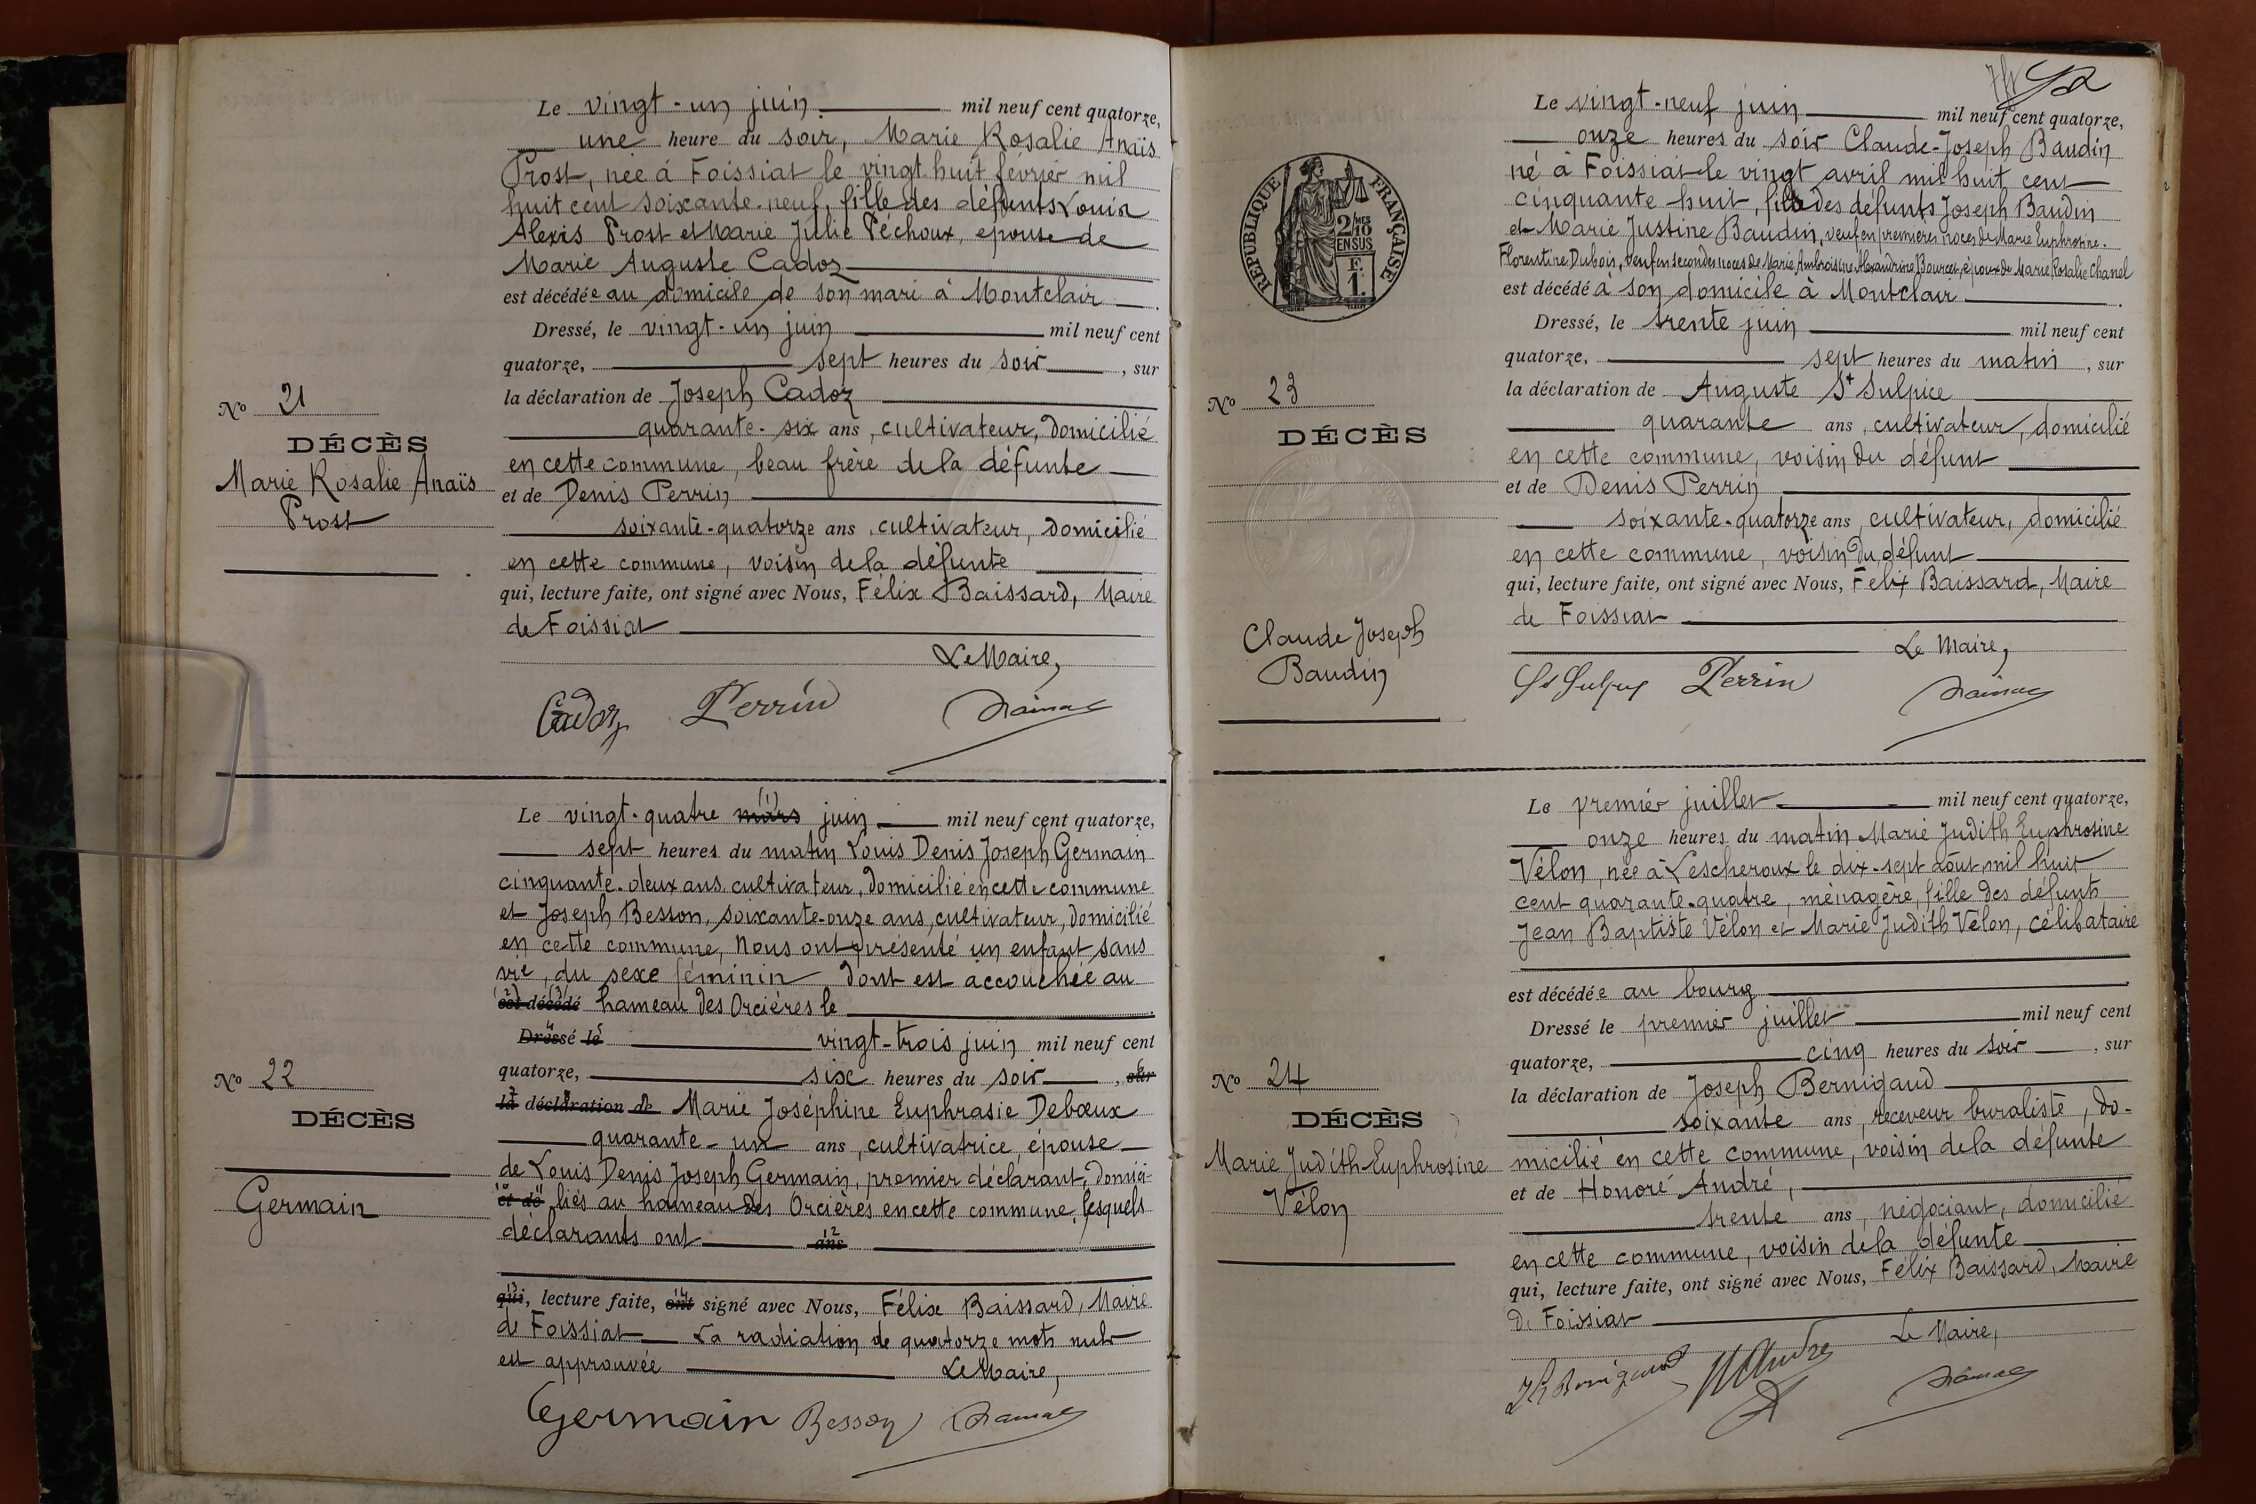 Le vingt-un juin mil neuf cent quatorze,
une heure du soir, Marie Rosalie Anaïs
Prost, née à Foissiat le vingt huit février mil
huit cent soixante-neuf, fille des défunts Louis
Alexis Prost et Marie Julie Péchoux, épouse de
Marie Auguste Cadoz
est décédée au domicile de son mari à Montclair
Dressé, le vingt-un juin mil neuf cent
quatorze, sept heures du soir, sur
la déclaration de Joseph Cadoz
quarante-six ans, cultivateur, domicilié
en cette commune, beau frère de la défunte
et de Denis Perrin
soixante-quatorze ans, cultivateur, domicilié
en cette commune, voisin de la défunte
qui, lecture faite, ont signé avec Nous, Félix Baissard, Maire
de Foissiat
Le Maire,
Cadoz Perrin
No 21
DÉCÈS
Marie Rosalie Anaïs
Prost
Le vingt-quatre mars (1) juin mil neuf cent quatorze,
sept heures du matin Louis Denis Joseph Germain
cinquante-deux ans, cultivateur, domicilié en cette commune
et Joseph Besson, soixante-onze ans, cultivateur, domicilié
en cette commune, Nous ont présenté un enfant sans
vie, du sexe féminin dont est accouchée au
est décédé hameau des Orcières le
Dressé le vingt-trois juin mil neuf cent
quatorze, six heures du soir, sur
la déclaration de Marie Joséphine Euphrasie Debœux
quarante-un ans, cultivatrice, épouse
de Louis Denis Joseph Germain, premier déclarant, domici-
et de liés au hameau des Orcières en cette commune, lesquels
déclarants ont ans
qui, lecture faite, ont signé avec Nous, Félix Baissard, Maire
de Foissiat La radiation de quatorze mots nuls
est approuvée Le Maire,
Germain Besson
No 22
DÉCÈS
Germain
Le vingt-neuf juin mil neuf cent quatorze,
onze heures du soir Claude-Joseph Baudin
né à Foissiat le vingt avril mil huit cent
cinquante-huit, fils des défunts Joseph Baudin
et Marie Justine Baudin, veuf en premières noces de Marie Euphrosine
Florentine Dubois, veuf en secondes noces de Marie Ambroisine Alexandrine Bourcet, époux de Marie Rosalie Chanel
est décédé à son domicile à Montclair
Dressé, le trente juin mil neuf cent
quatorze, sept heures du matin, sur
la déclaration de Auguste St Sulpice
quarante ans, cultivateur, domicilié
en cette commune, voisin du défunt
et de Denis Perrin
soixante-quatorze ans, cultivateur, domicilié
en cette commune, voisin du défunt
qui, lecture faite, ont signé avec Nous, Félix Baissard, Maire
de Foissiat
Le Maire,
Perrin
RÉPUBLIQUE FRANÇAISE
2/10 MES
EN SUS
F.
1.
No 23
DÉCÈS
Claude Joseph
Baudin
Le premier juillet mil neuf cent quatorze,
onze heures du matin Marie Judith Euphrosine
Vélon, née à Lescheroux le dix-sept août mil huit
cent quarante-quatre, ménagère, fille des défunts
Jean Baptiste Vélon et Marie Judith Vélon, célibataire
est décédée au bourg
Dressé le premier juillet mil neuf cent
quatorze, cinq heures du soir, sur
la déclaration de Joseph Bernigaud
soixante ans, receveur buraliste, do-
micilié en cette commune, voisin de la défunte
et de Honoré André,
trente ans, négociant, domicilié
en cette commune, voisin de la défunte
qui, lecture faite, ont signé avec Nous, Félix Baissard, Maire
de Foissiat
Le Maire,
No 24
DÉCÈS
Marie Judith Euphrosine
Vélon